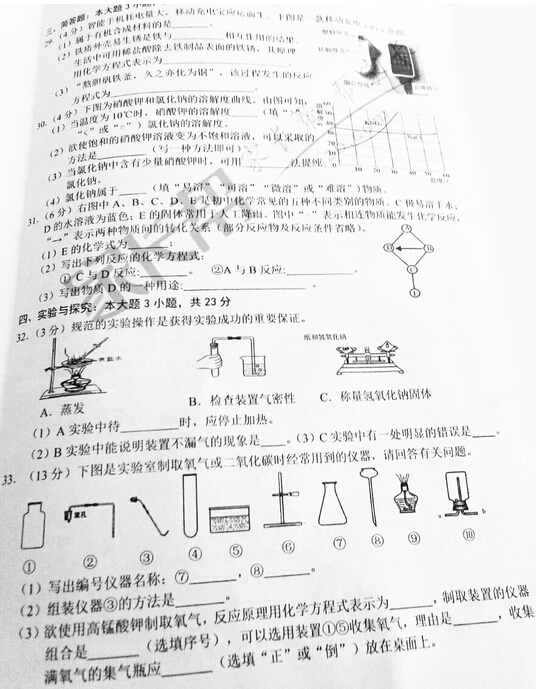 三、简答题：本大题3小题，
29.（4分）智能手机耗电量大，移动充电宝应运而生。下图是一款移动充电
（1）属于有机合成材料的是
（2）铁质外壳易生锈是铁与________相互作用的结果。
生活中可用稀盐酸除去铁制品表面的铁锈，其原理
用化学方程式表示为
（3）“熬胆矾铁釜，久之亦化为铜”，该过程发生的反应
方程式为
30.（4分）下图为硝酸钾和氯化钠的溶解度曲线。由图可知：
（1）当温度为10℃时，硝酸钾的溶解度____（填“>”
“<”或“=”）氯化钠的溶解度。
（2）欲使饱和的硝酸钾溶液变为不饱和溶液，可以采取的
方法是____（写一种方法即可）
（3）当氯化钠中含有少量硝酸钾时，可用____法提纯
氯化钠。
（4）氯化钠属于____（填“易溶”“可溶”“微溶”或“难溶”）物质。
31.（6分）右图中A、B、C、D、E是初中化学常见的五种不同类别的物质。C极易溶于水；
D的水溶液为蓝色；E的固体常用于人工降雨。图中“-”表示相连物质能发生化学反应，
“→”表示两种物质间的转化关系（部分反应物及反应条件省略）。
（1）E的化学式为____；
（2）写出下列反应的化学方程式：
①C与D反应：____。 ②A与B反应：____。
（3）写出物质D的一种用途：____
四、实验与探究：本大题3小题，共23分
32.（3分）规范的实验操作是获得实验成功的重要保证。
食盐水
纸和氢氧化钠
A．蒸发 B．检查装置气密性 C．称量氢氧化钠固体
（1）A实验中待____时，应停止加热。
（2）B实验中能说明装置不漏气的现象是____。（3）C实验中有一处明显的错误是____。
33.（13分）下图是实验室制取氧气或二氧化碳时经常用到的仪器，请回答有关问题。
双孔
a b
① ② ③ ④ ⑤ ⑥ ⑦ ⑧ ⑨ ⑩
（1）写出编号仪器名称：⑦____，⑧____。
（2）组装仪器③的方法是____。
（3）欲使用高锰酸钾制取氧气，反应原理用化学方程式表示为____，制取装置的仪器
组合是____（选填序号），可以选用装置①⑤收集氧气，理由是____，收集
满氧气的集气瓶应____（选填“正”或“倒”）放在桌面上。